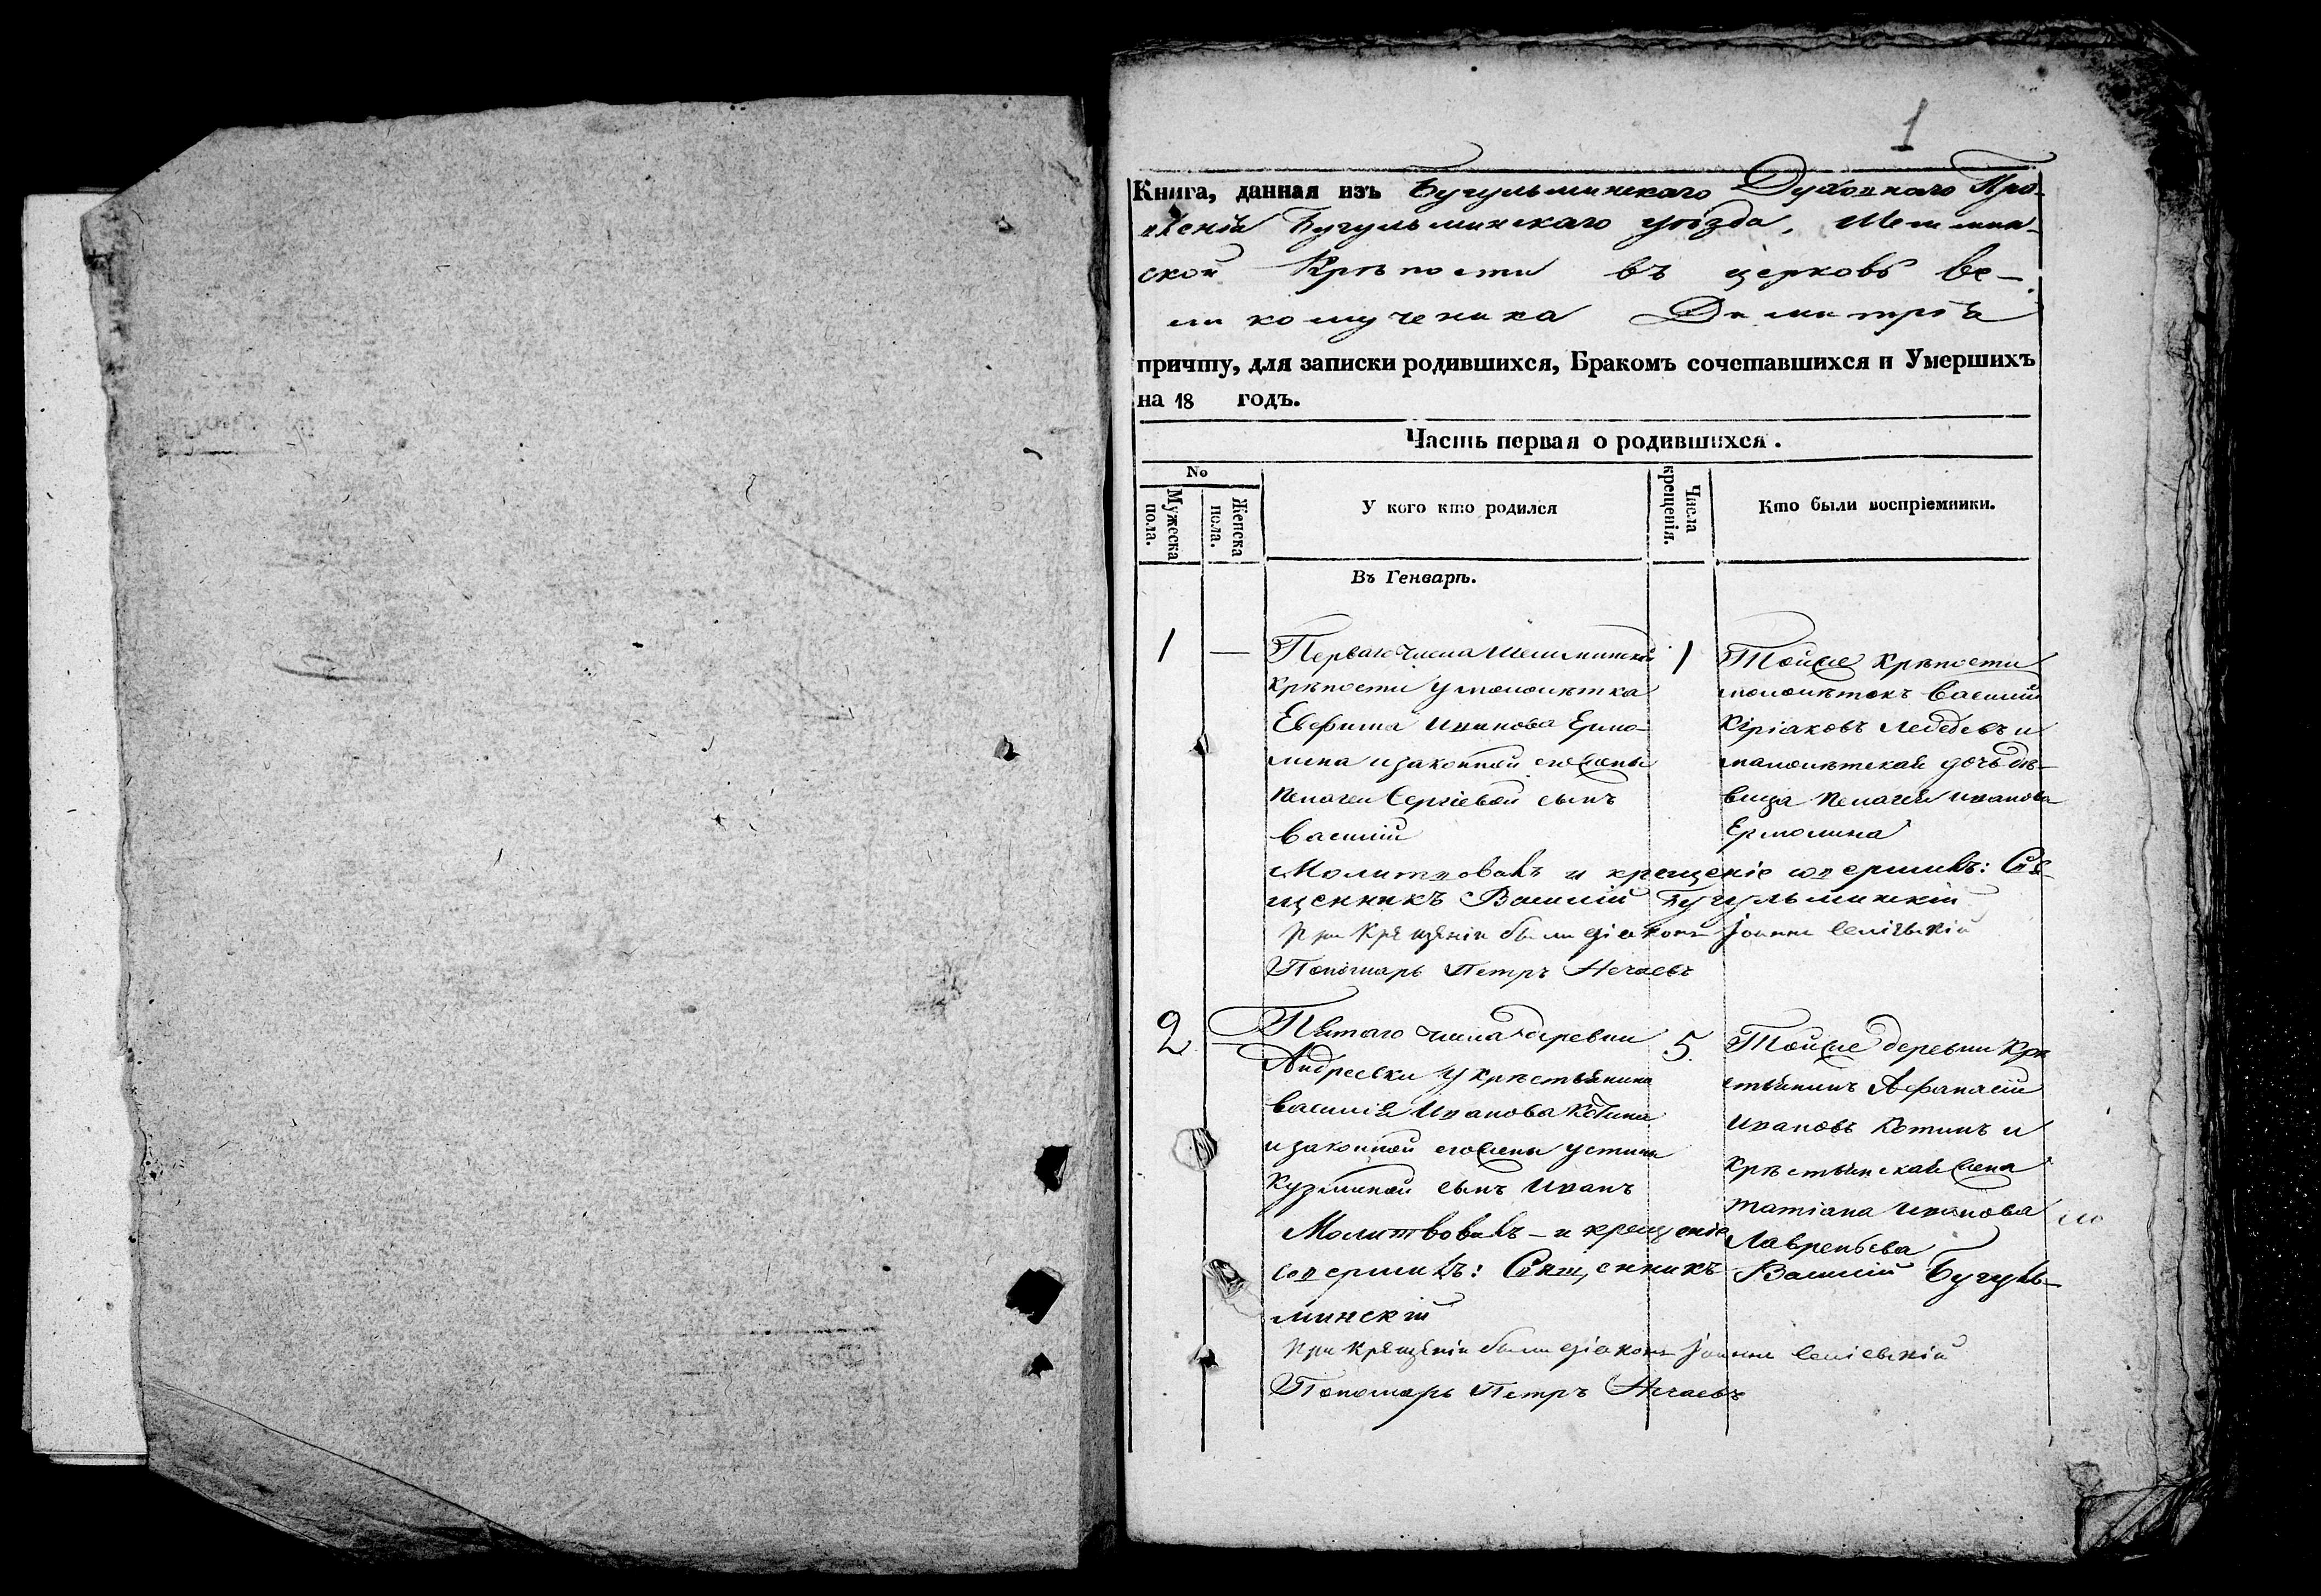 1
Книга, данная изъ Бугульминскаго Духовнаго Пра-
вленія Бугульминскаго уѣзда, Шешмин-
ской Крѣпости въ церковь Ве-
ликомученика Димитрія
причту, для записки родившихся, Бракомъ сочетавшихся и Умершихъ
на 18 годъ.
Часть первая о родившихся.
No
Мужеска пола.
Женска пола.
У кого кто родился
Числа крещенія.
Кто были воспріемники.
Въ Генварѣ.
1 — Перваго числа Шешминской
крѣпости у малолѣтка
Евфима Иванова Ермо-
лина и законной его жены
Пелагеи Сергіевой сынъ
Василій
1 Тойже крѣпости
малолѣтокъ Василій
Киріаковъ Лебедевъ и
малолѣтская дочь дѣ-
вица Пелагея Иванова
Ермолина
Молитвовалъ и крещеніе совершилъ: Свя-
щенникъ Василій Бугульминскій
При Крещеніи были діаконъ Іоаннъ
Пономарь Петръ Нечаевъ
2 — Пятаго числа деревни
Андреевки у крѣстьянина
Василія Иванова Котина
и законной его жены Устиньи
Кузминой сынъ Иванъ
5. Тойже деревни Крѣ
стьянинъ Афанасій
Ивановъ Котинъ и
крѣстьянская жена
Татіана Иванова
Лаврентьева
Молитвовалъ - и крещеніе
совершилъ: Священникъ Василій Бугуль-
минскій
При Крещеніи были діаконъ Іоаннъ
Пономарь Петръ Нечаевъ